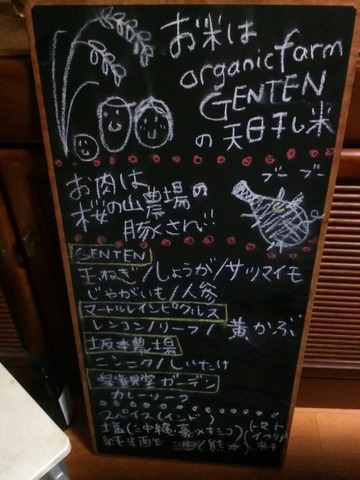 お米は
organic farm
GENTEN
の天日干し米
お肉は
桜の山農場の
豚さん!!
ブーブー
GENTEN
玉ねぎ/しょうが/サツマイモ
じゃがいも/人参
マートルレインピクルス
レンコン/リーフ/黄かぶ
坂本農場
ニンニク/しいたけ
ガーデン
カレーリーフ
スパイス(インド)
塩(沖縄・豪・メキシコ)
トマト
イタリア